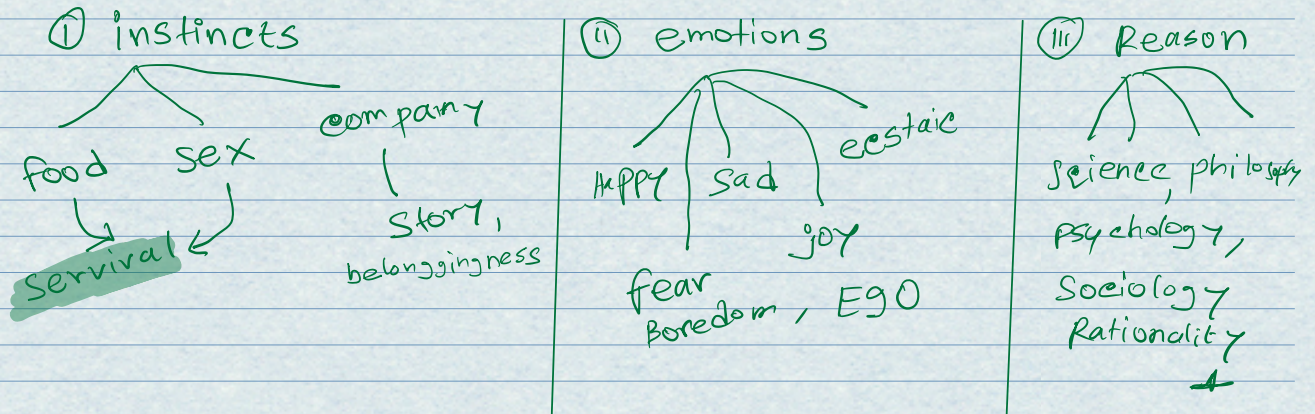 i instincts
food
sex
company
servival
story,
belonggingness
ii emotions
Happy
sad
ecstaic
joy
fear
Boredom, EgO
iii Reason
science, philosophy
psychology,
Sociology
Rationality